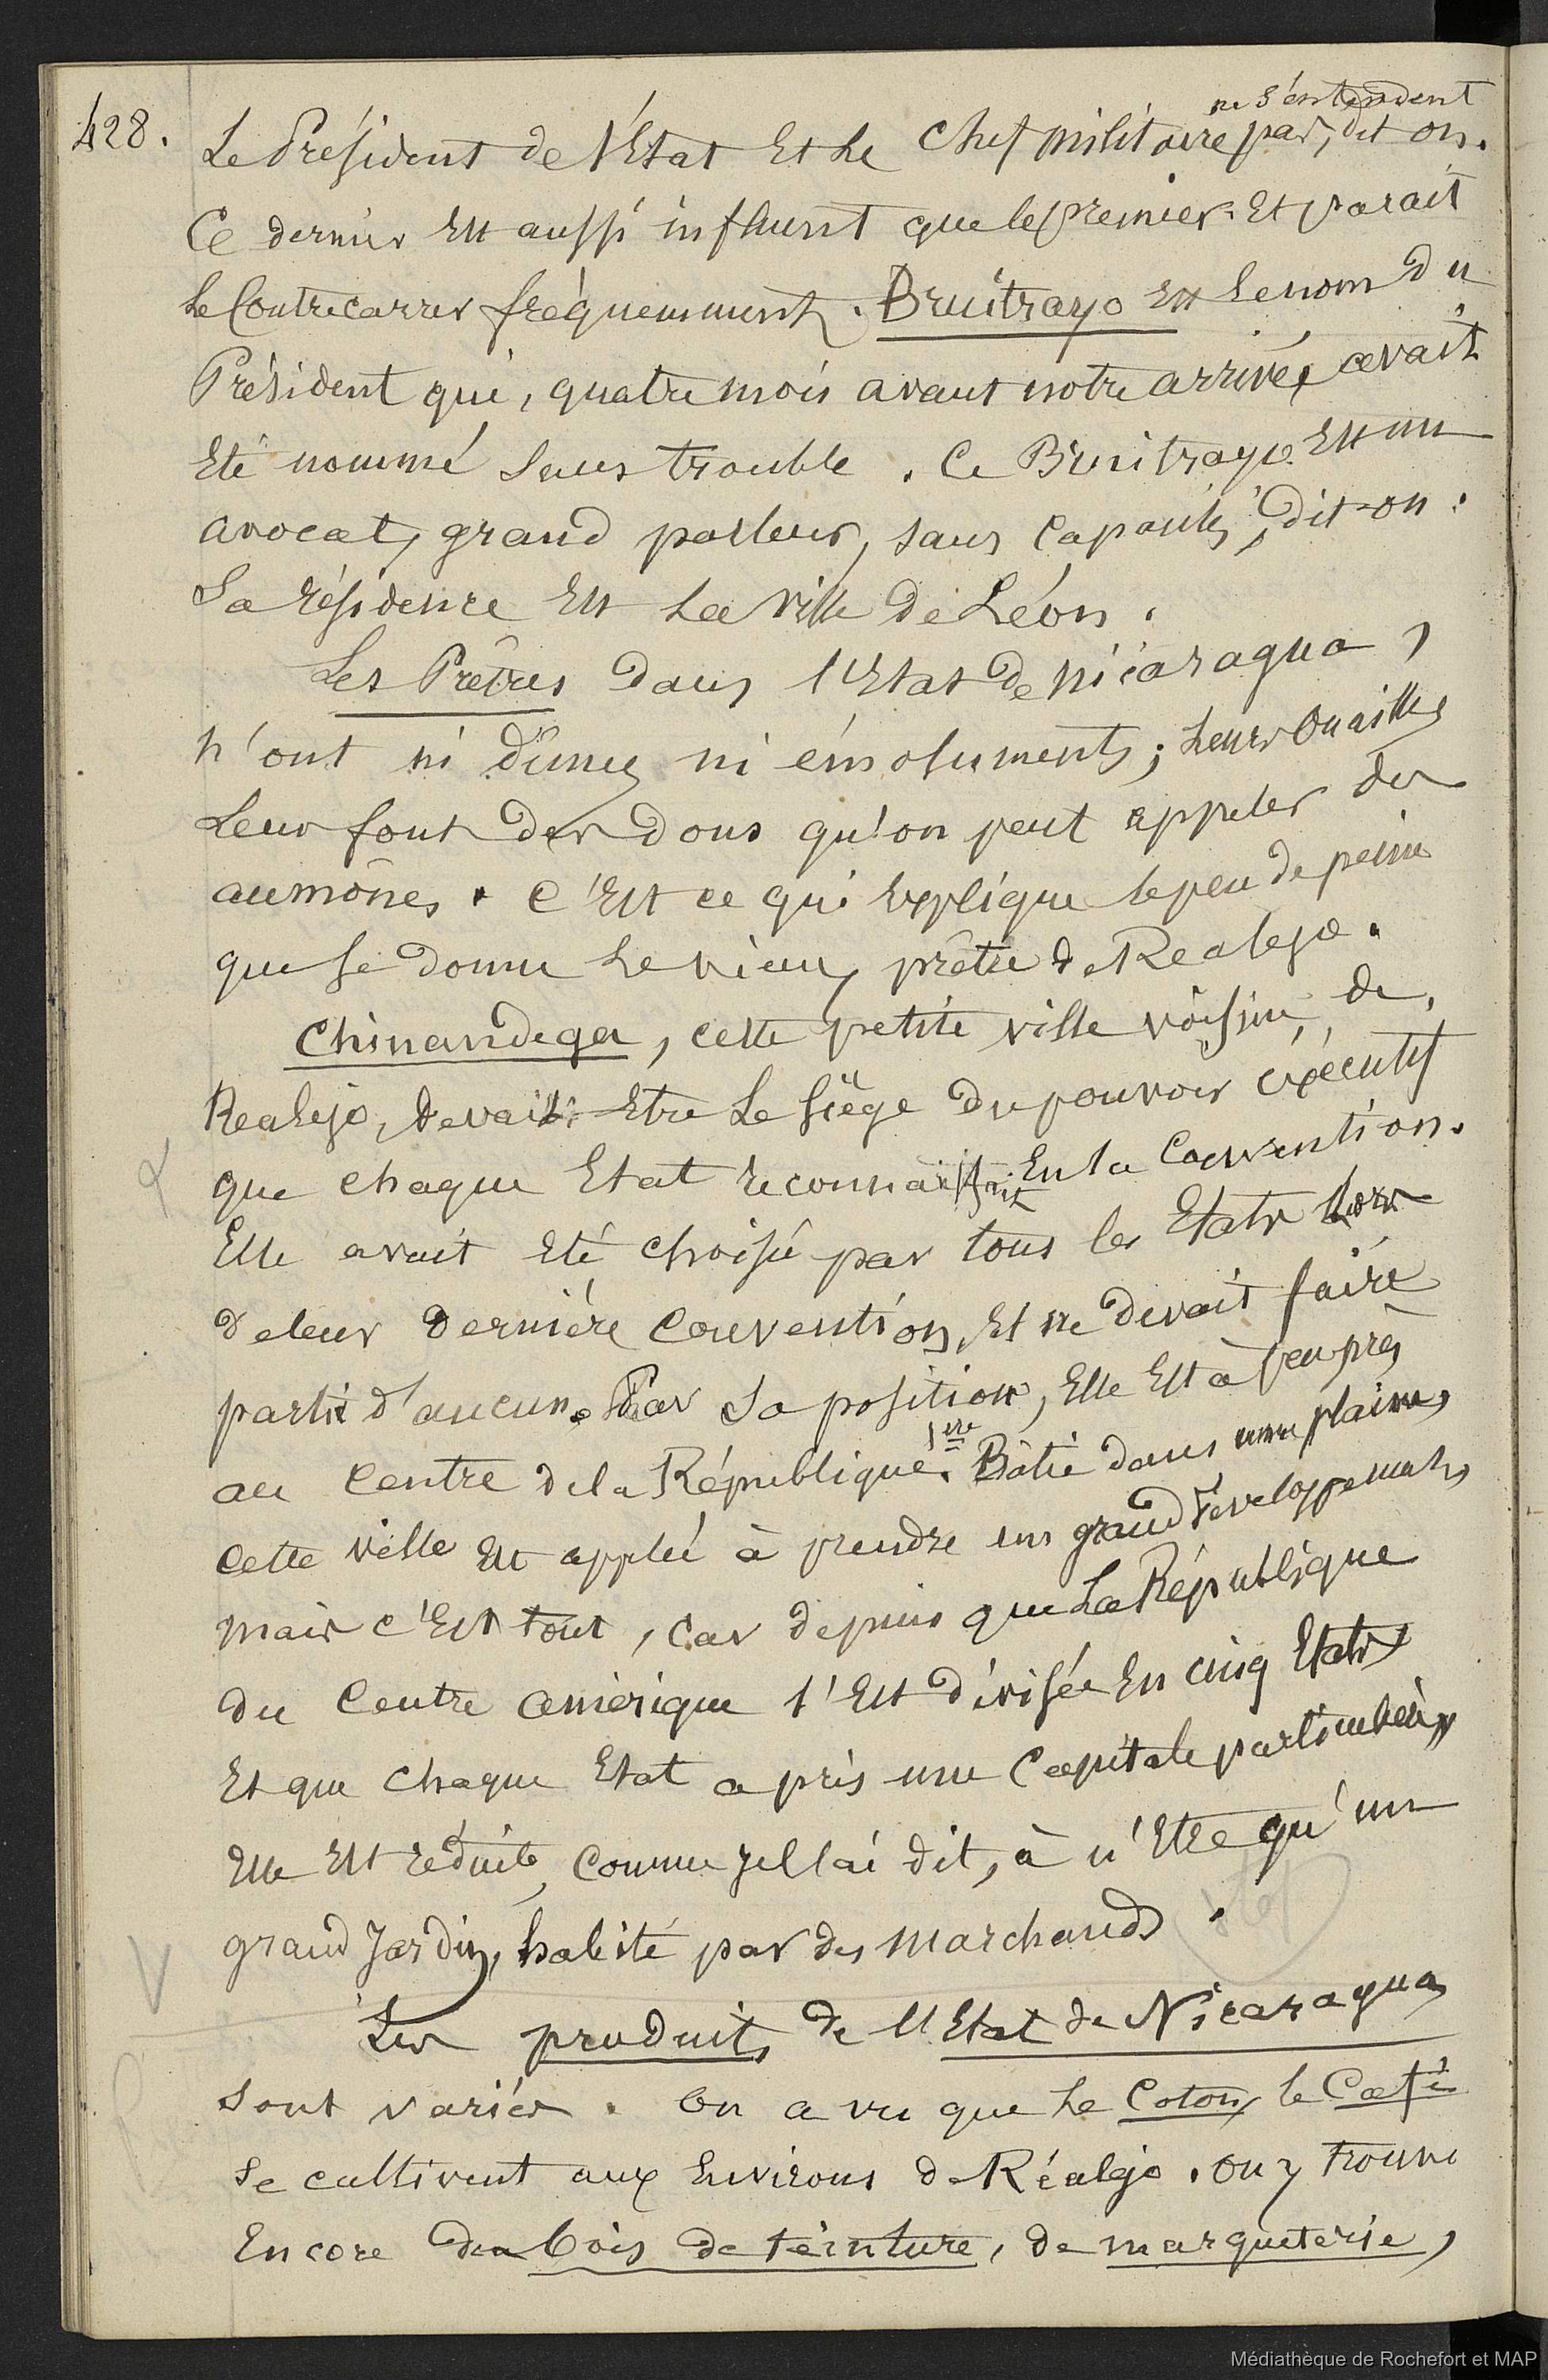 428.
ne s'entendent
Le Président de l'Etat Et Le Chef militaire pas, dit on.
Ce dernier Est aussi influent que le premier Et parait
Le Contrecarrer fréquemment. Bruitrayo Est Le nom du
Président qui, quatre mois avant notre arrivée avait
Eté nommé sans trouble. Ce Bruitrayo Est un
avocat, grand parleur, sans capacités, dit-on :
Sa résidence Est La ville de Léon.
Les Prêtres dans l'Etat de Nicaragua,
n'ont ni dîmes ni émoluments ; Leurs Ouailles
Leur font des dons qu'on peut appeler des
aumônes. C'Est ce qui Explique le peu de peine
que se donne Le vieux prêtre de Realejo.
Chinandega, cette petite ville voisine de
Realejo, devait Etre Le Siège du pouvoir éxécutif
que chaque Etat reconnaissait En la Convention.
Elle avait Eté choisie par tous les Etats lors
de leur dernière Convention, Et ne devait faire
partie d'aucun. Par sa position, Elle Est à peu près
au Centre de la République 1ère. Bâtie dans une plaine,
cette ville Est applée à prendre un grand développement,
mais c'Est tout, car depuis que La République
du Centre amérique s'Est divisée En cinq Etats
Et que chaque Etat a pris une Capitale particulière,
Elle Est réduite, comme je l'ai dit, à n'Etre qu'un
grand Jardin, habité par des marchands.
Les produits de l'Etat de Nicaragua,
sont variés. On a vu que Le Coton, le Café
se cultivent aux Environs de Réalejo. On y trouve
Encore des bois de teinture, de marqueterie,
Médiathèque de Rochefort et MAP